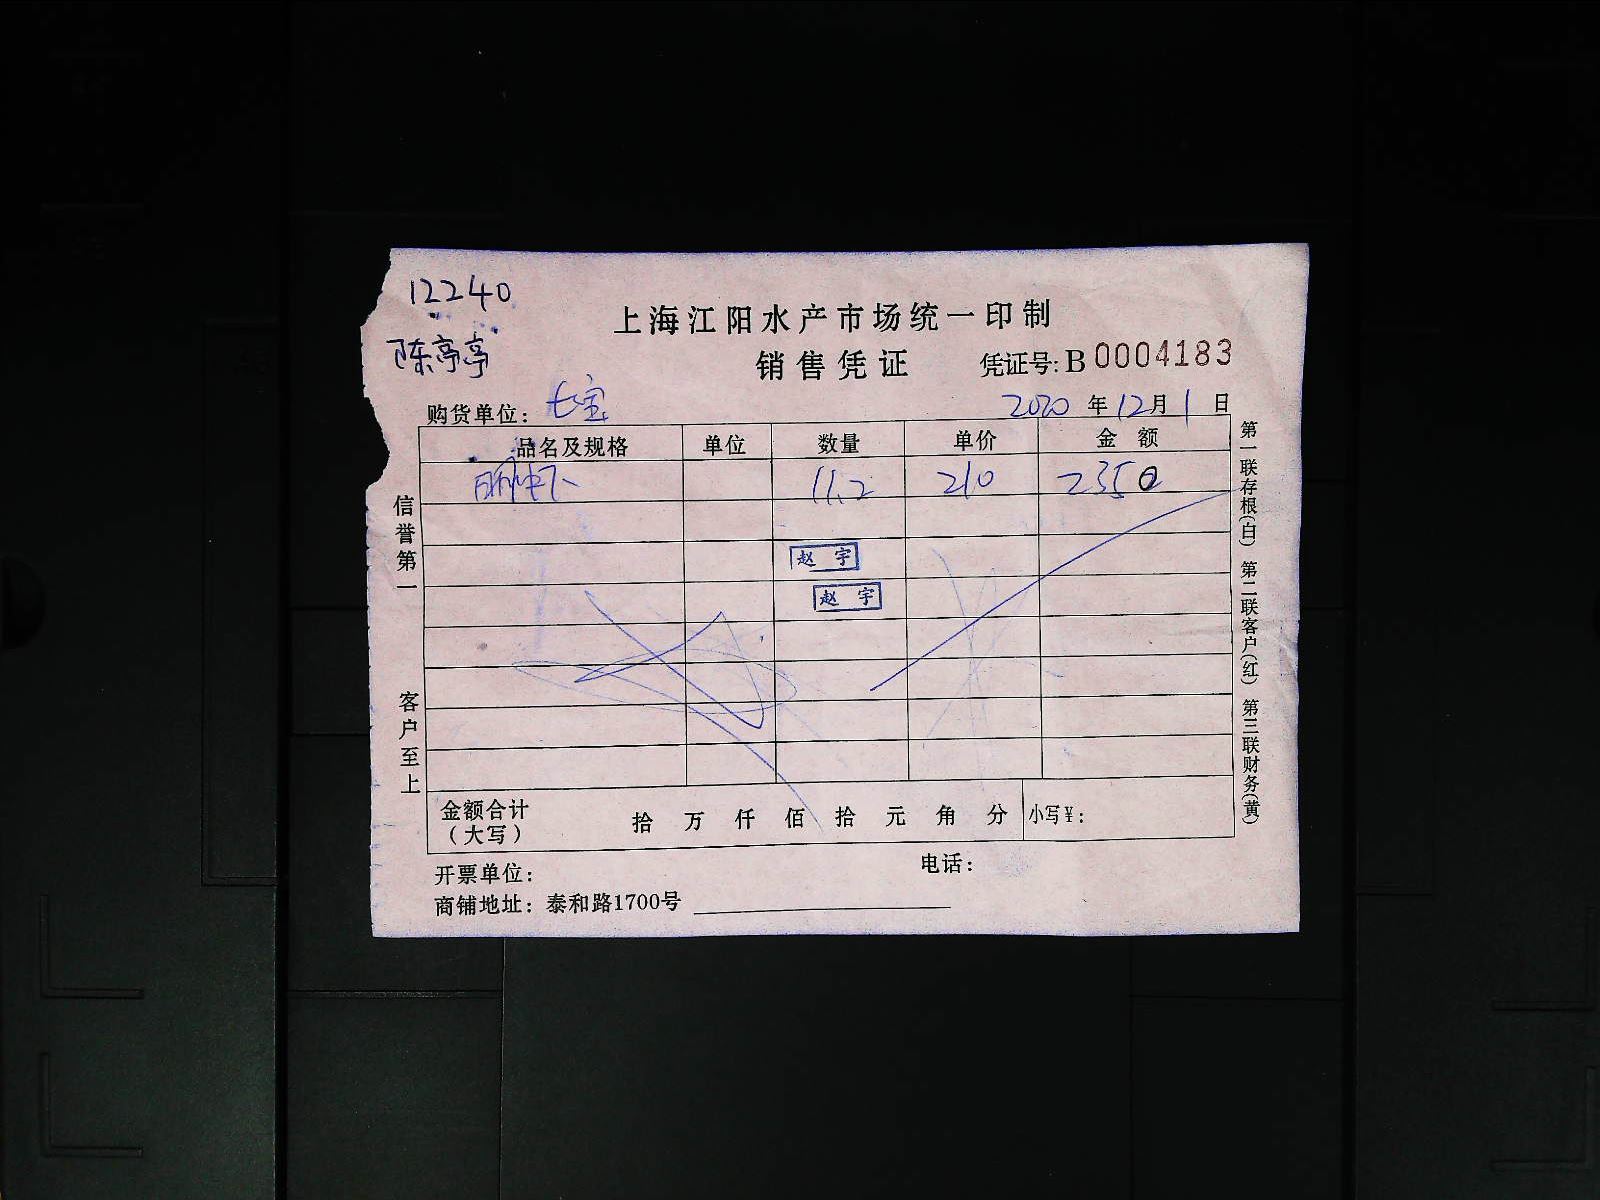 12240
陈亭亭
上海江阳水产市场统一印制
销售凭证 凭证号:B 0004183
购货单位: 七宝 2020 年 12 月 1 日
品名及规格 单位 数量 单价 金额
明虾 11.2 210 2350
赵宇
赵宇
金额合计(大写) 拾 万 仟 佰 拾 元 角 分 小写¥:
开票单位: 电话:
商铺地址: 泰和路1700号
信誉第一 客户至上
第一联存根(白) 第二联客户(红) 第三联财务(黄)